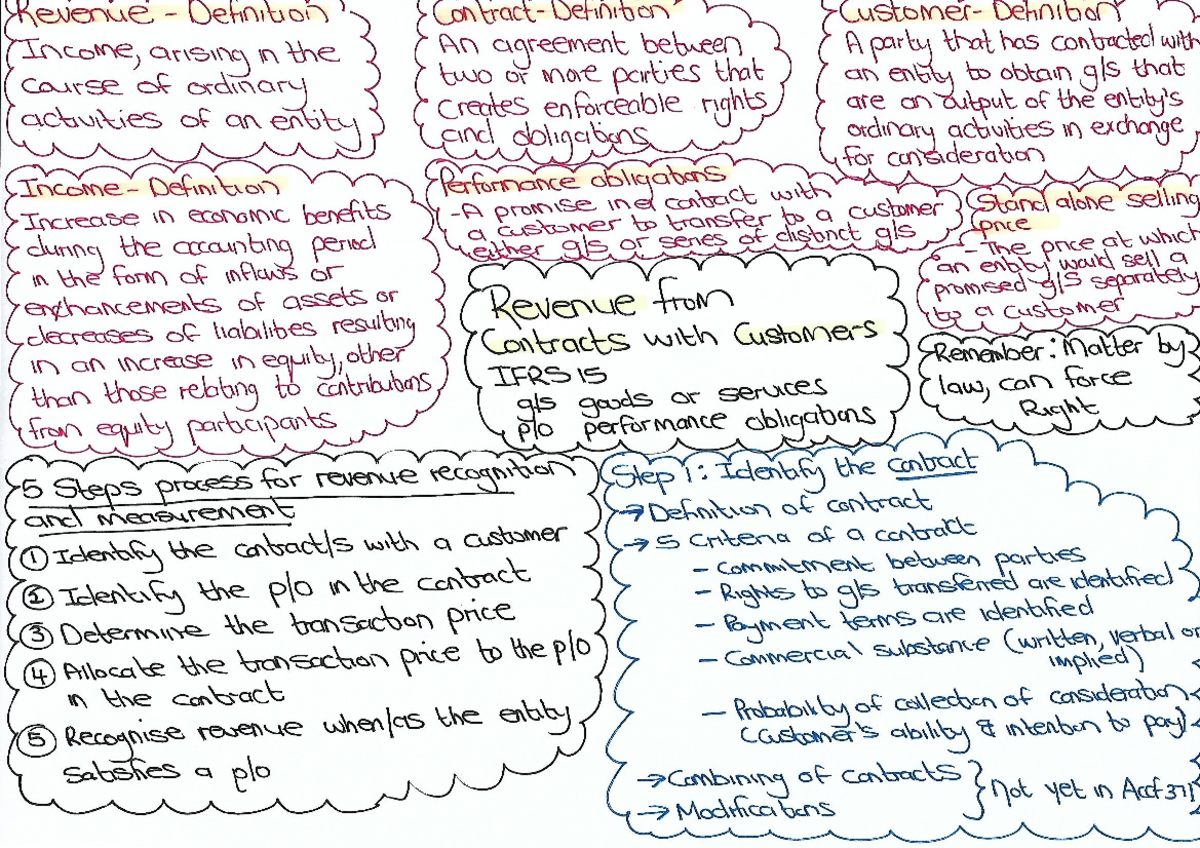 Revenue - Definition
Income, arising in the
course of ordinary
activities of an entity
Contract - Definition
An agreement between
two or more parties that
creates enforceable rights
and obligations
Customer - Definition
A party that has contracted with
an entity to obtain g/s that
are an output of the entity's
ordinary activities in exchange
for consideration
Income - Definition
Increase in economic benefits
during the accounting period
in the form of inflows or
enhancements of assets or
decreases of liabilities resulting
in an increase in equity, other
than those relating to contributions
from equity participants
Performance obligations
- A promise in a contract with
a customer to transfer to a customer
either g/s or series of distinct g/s
Stand alone selling
price
- The price at which
an entity would sell a
promised g/s separately
to a customer
Revenue from
Contracts with Customers
IFRS 15
g/s goods or services
p/o performance obligations
Remember: Matter by
law, can force
Right
5 Steps process for revenue recognition
and measurement
① Identify the contract/s with a customer
② Identify the p/o in the contract
③ Determine the transaction price
④ Allocate the transaction price to the p/o
in the contract
⑤ Recognise revenue when/as the entity
satisfies a p/o
Step 1: Identify the contract
→ Definition of contract
→ 5 Criteria of a contract
- Commitment between parties
- Rights to g/s transferred are identified
- Payment terms are identified
- Commercial substance (written, verbal or
implied)
- Probability of collection of consideration
(Customer's ability & intention to pay)
→ Combining of contracts
→ Modifications
} Not yet in Accf 371